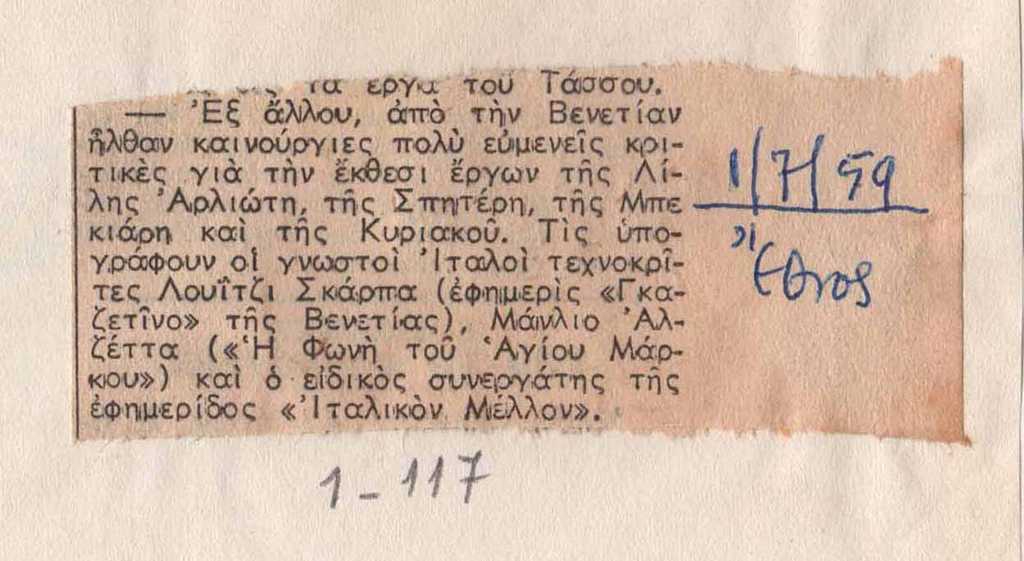 τὰ ἔργα τοῦ Τάσσου.
— Ἐξ ἄλλου, ἀπὸ τὴν Βενετίαν
ἦλθαν καινούργιες πολὺ εὐμενεῖς κρι-
τικὲς γιὰ τὴν ἔκθεσι ἔργων τῆς Λί-
λης Ἀρλιώτη, τῆς Σπητέρη, τῆς Μπε
κιάρη καὶ τῆς Κυριακοῦ. Τὶς ὑπο-
γράφουν οἱ γνωστοὶ Ἰταλοὶ τεχνοκρῖ-
τες Λουΐτζι Σκάρπα (ἐφημερὶς «Γκα-
ζετῖνο» τῆς Βενετίας), Μάνλιο Ἀλ-
ζέττα («Ἡ Φωνὴ τοῦ Ἁγίου Μάρ-
κου») καὶ ὁ εἰδικὸς συνεργάτης τῆς
ἐφημερίδος «Ἰταλικὸν Μέλλον».
1/7/59
Ἔθνος
1-117